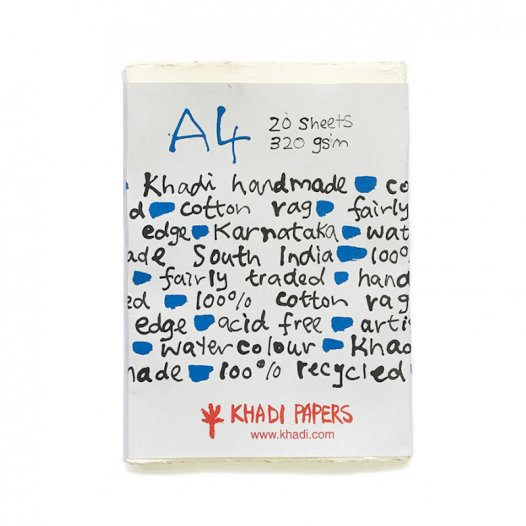 A4
20 sheets
320 gsm
Khadi handmade co
d cotton rag fairly
edge Karnataka wat
ade South India 100%
fairly traded hand
ed 100% cotton rag
edge acid free arti
watercolour Khad
nade 100% recycled
KHADI PAPERS
www.khadi.com